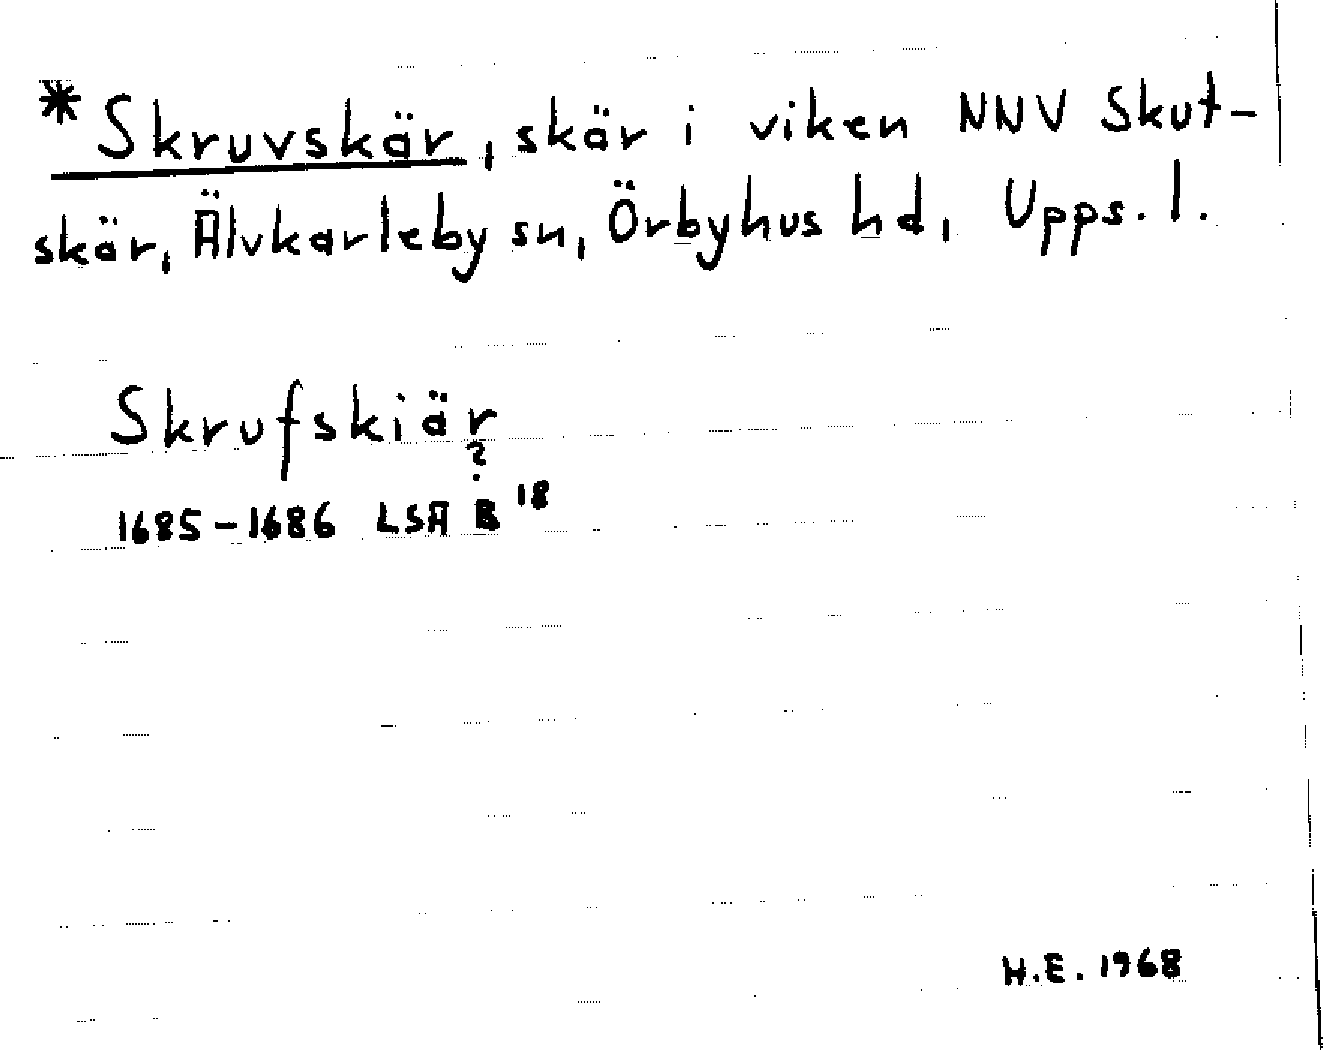 *Skruvskär, skär i viken NNV Skut-
skär, Älvkarleby sn, Örbyhus hd, Upps. l.
Skrufskiär
?
1685-1686 LSA B 18
H.E. 1968